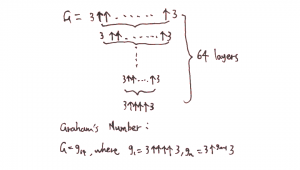 G = 3↑↑ . . . . . . . ↑3
3 ↑↑ . . . . . . ↑3
3↑↑ . . . ↑3
3↑↑↑↑3
64 layers
Graham's Number:
G=g₆₄, where g₁=3↑↑↑↑3, gₙ=3↑^gₙ₋₁ 3